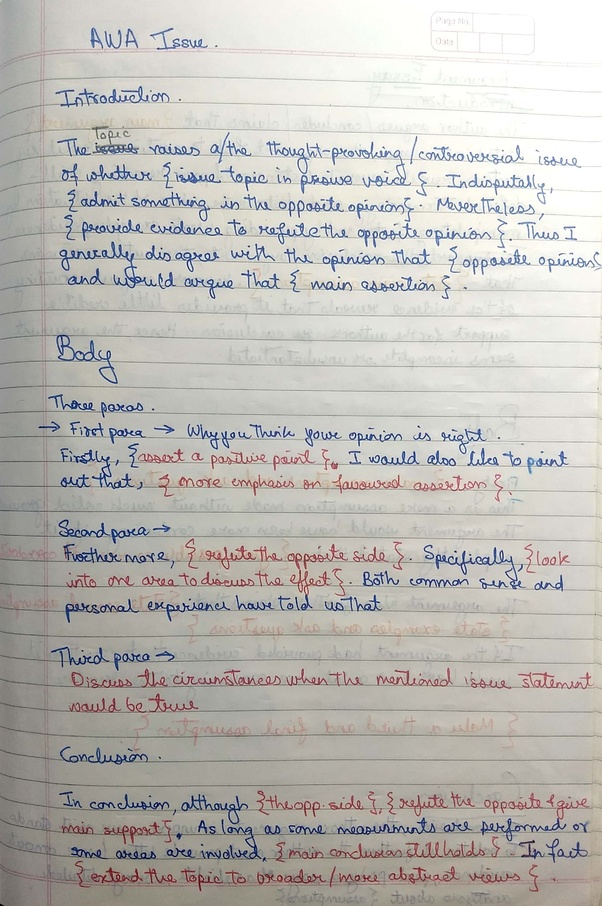 Page No.
Date
AWA Issue.
Introduction.
Topic
The issue raises a/the thought-provoking/controversial issue
of whether {issue topic in passive voice}. Indisputably,
{admit something in the opposite opinion}. Nevertheless,
{provide evidence to refute the opposite opinion}. Thus I
generally disagree with the opinion that {opposite opinion}
and would argue that {main assertion}.
Body
Three paras.
→ First para → Why you think your opinion is right.
Firstly, {assert a positive point}. I would also like to point
out that, {more emphasis on favoured assertion}.
Second para →
Further more, {refute the opposite side}. Specifically, {look
into one area to discuss the effect}. Both common sense and
personal experience have told us that
Third para →
Discuss the circumstances when the mentioned issue statement
would be true
Conclusion.
In conclusion, although {the opp. side}, {refute the opposite & give
main support}. As long as some measurments are performed or
some areas are involved, {main conclusion still holds}. In fact
{extend the topic to broader/more abstract views}.